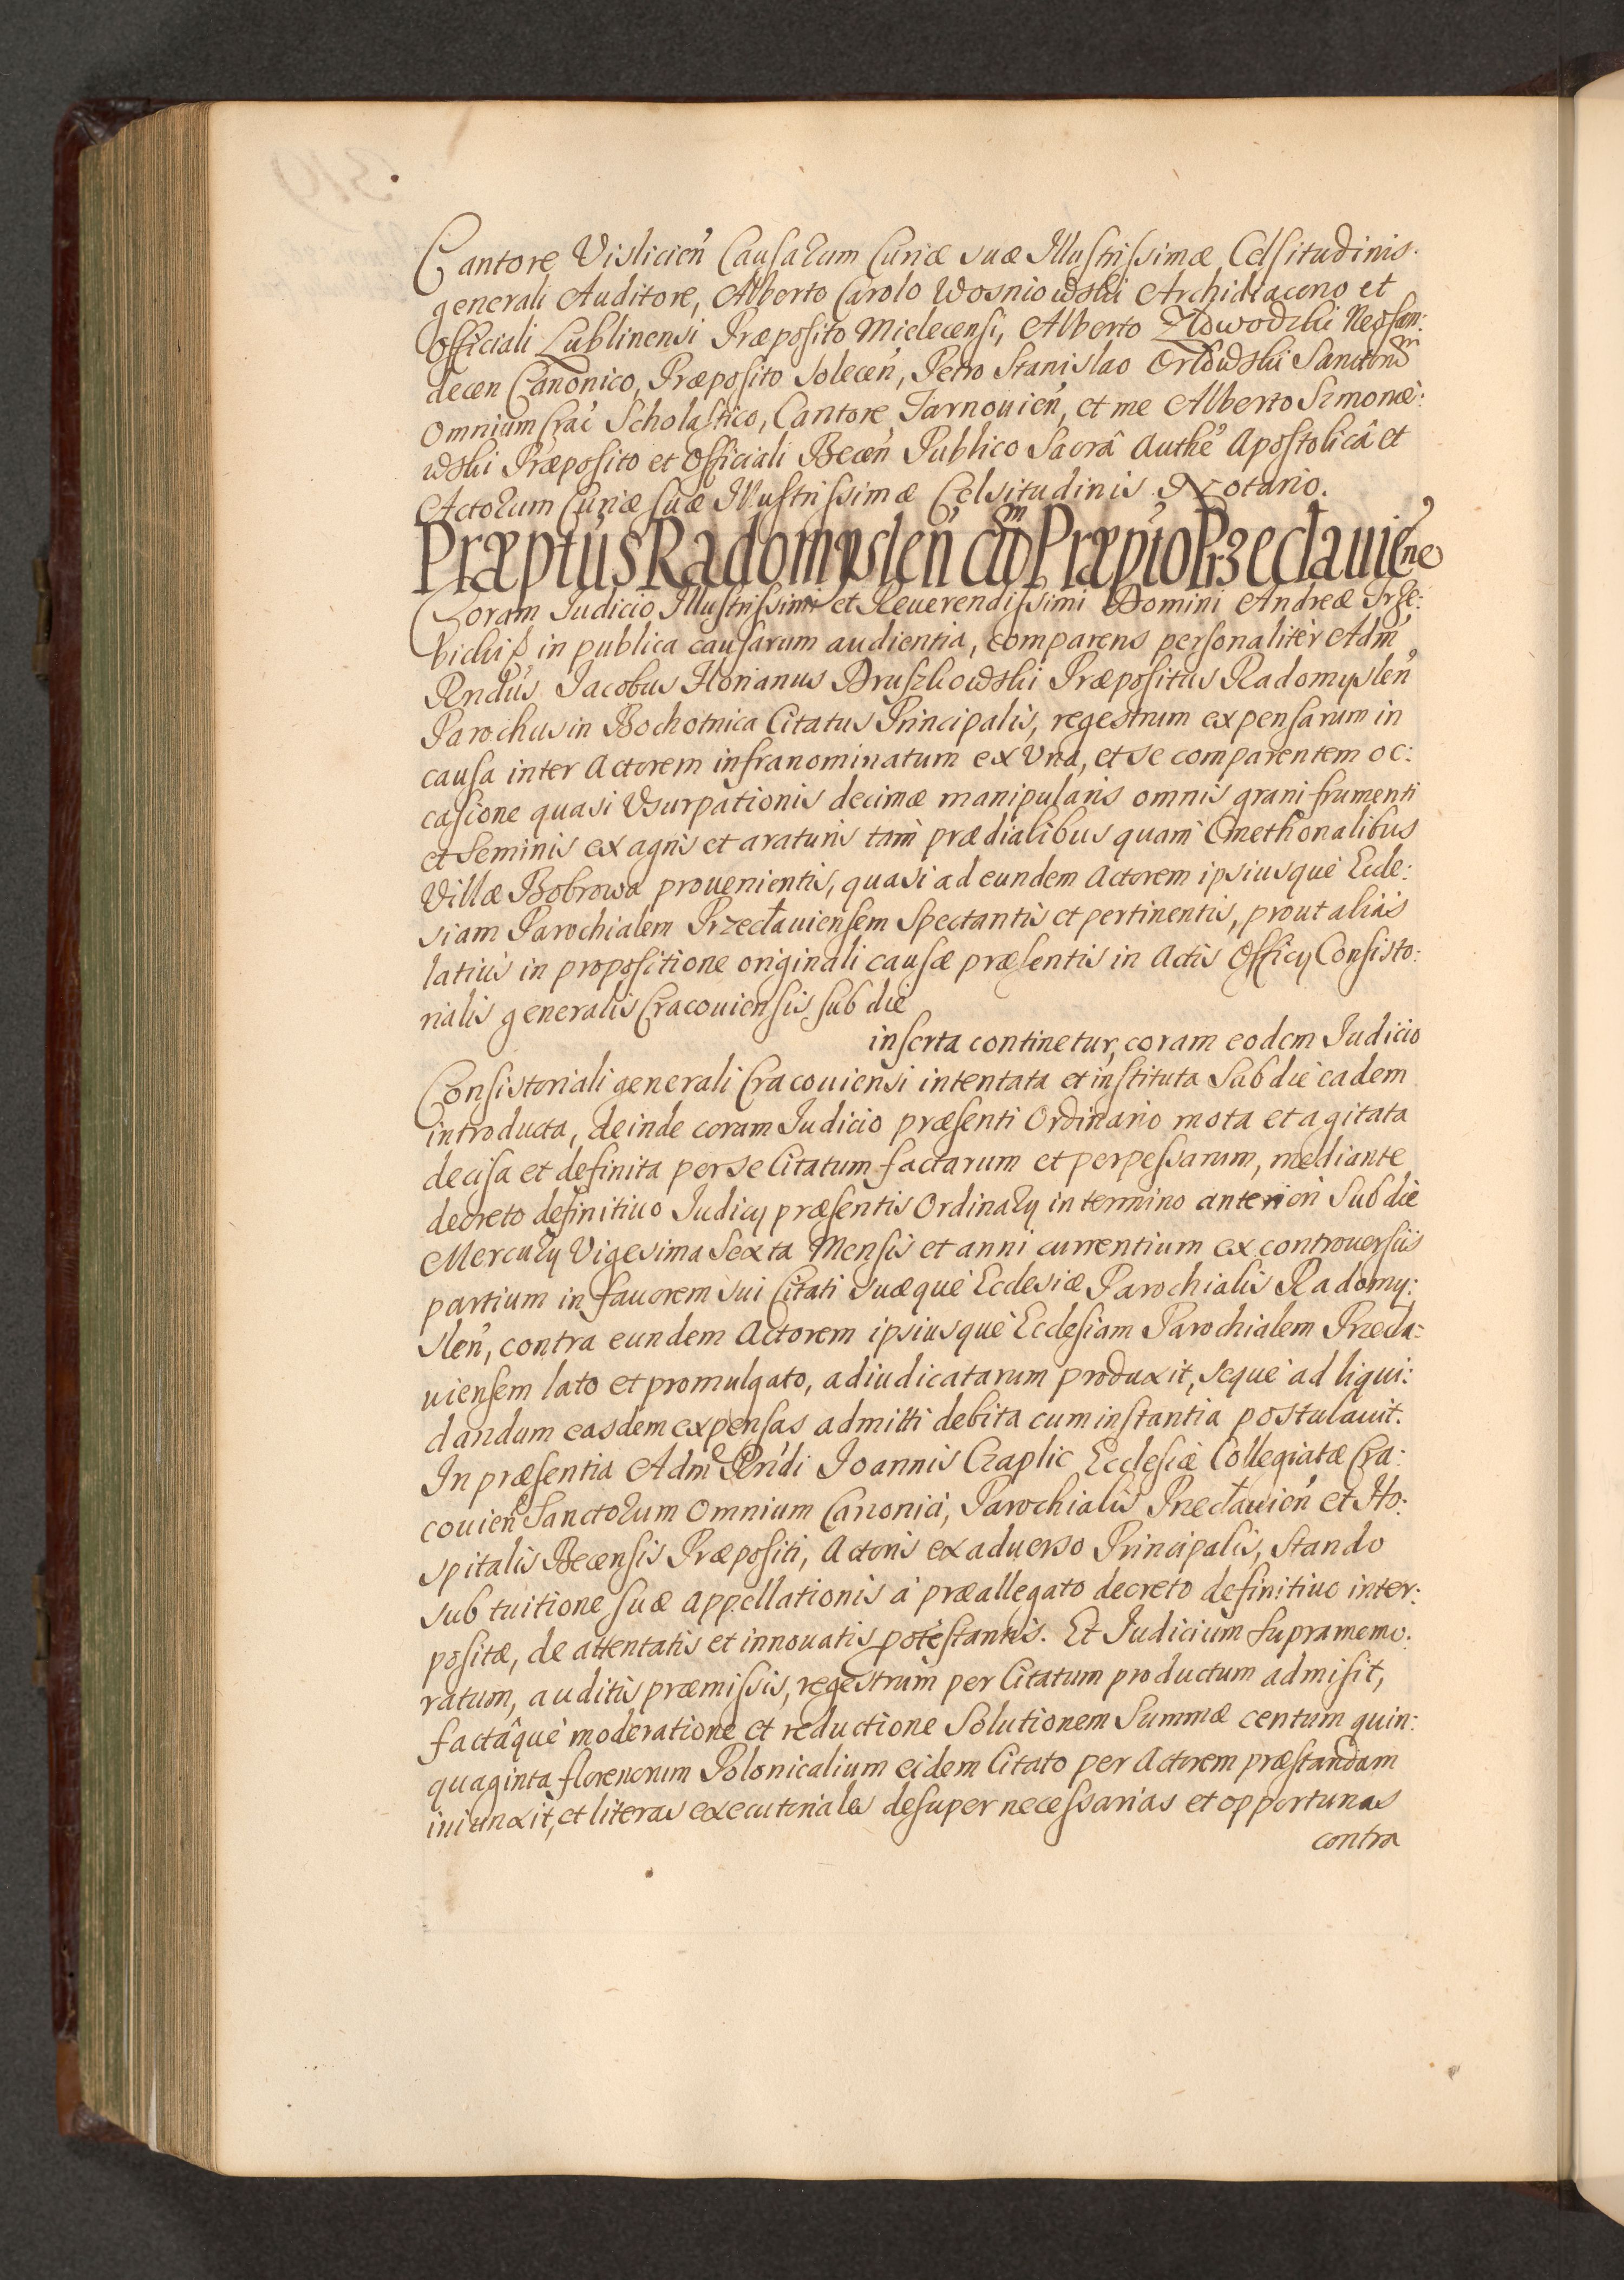 Cantore Vislicien̄ Causarum Curiæ suæ Illustrissimæ Celsitudinis.
generali Auditore, Alberto Carolo Wosniowski Archidiacono et
Officiali Lublinensi Præposito Mielecensi, Alberto Neosan:
decen Canonico, Præposito Solecen̄, Petro Stanislao Orłowski Sanctor̄m
Omnium Crac̄ Scholastico, Cantore Tarnouien̄, et me Alberto Szmonie:
wski Præposito et Officiali Becen̄ Publico Sacrâ Authē Apostolicâ et
Actorum Curiæ suæ Illustrissimæ Celsitudinis Notario.
Præptus Radomyslen̄ cūm Præpto Przecłauiene
Coram Iudicio Illustrissimi et Reuerendissimi Domini Andreæ Trze:
bicki in publica causarum audientia, comparens personalitèr Adm̄
Rndus Iacobus Florianus Druszkowski Præpositus Radomyslen̄
Parochus in Bochotnica Citatus Principalis, regestrum expensarum in
causa inter Actorem infranominatum ex Vna, et se comparentem oc:
casione quasi Vsurpationis decimæ manipularis omnis grani frumenti
et seminis ex agris et araturis tam prædialibus quam Cmethonalibus
Villæ Bobrowa prouenientis, quasi ad eundem Actorem ipsiusquè Eccle:
siam Parochialem Przecłauiensem Spectantis et pertinentis, prout aliàs
latiùs in propositione originali causæ præsentis in Actis Officij Consisto:
rialis generalis Cracouiensis sub die
inserta continetur, coram eodem Iudicio
Consistoriali generali Cracouiensi intentata et instituta Sub die eadem
introducta, deinde coram Iudicio præsenti Ordinario mota et agitata
decisa et definita per se Citatum factarum et perpessarum, mediante
decreto definitiuo Iudicij præsentis Ordinarij in termino anteriori Sub die
Mercurij Vigesima Sexta Mensis et anni currentium ex controuersiis
partium in fauorem sui Citati suæquè Ecclesiæ Parochialis Radomy:
slen̄, contra eundem Actorem ipsiusquè Ecclesiam Parochialem Przecla:
uiensem lato et promulgato, adiudicatarum produxit, sequè ad liqui:
dandum easdem expensas admitti debita cum instantia postulauit.
In præsentia Adm̄ Rn̄di Ioannis Czaplic Ecclesiæ Collegiatæ Cra:
couien̄ Sanctorum Omnium Canonici, Parochialis Przecłauien̄ et Ho:
spitalis Becensis Præpositi, Actoris ex aduerso Principalis, stando
sub tuitione suæ appellationis à præallegato decreto definitiuo inter:
positæ, de attentatis et innouatis potestantis. Et Iudicium supramemo:
ratum, auditis præmissis, regestrum per Citatum productum admisit,
factâquè moderatione et reductione Solutionem Summæ centum quin:
quaginta florenorum Polonicalium eidem Citato per Actorem præstandam
iniunxit, et literas executoriales desuper necessarias et opportunas
contra